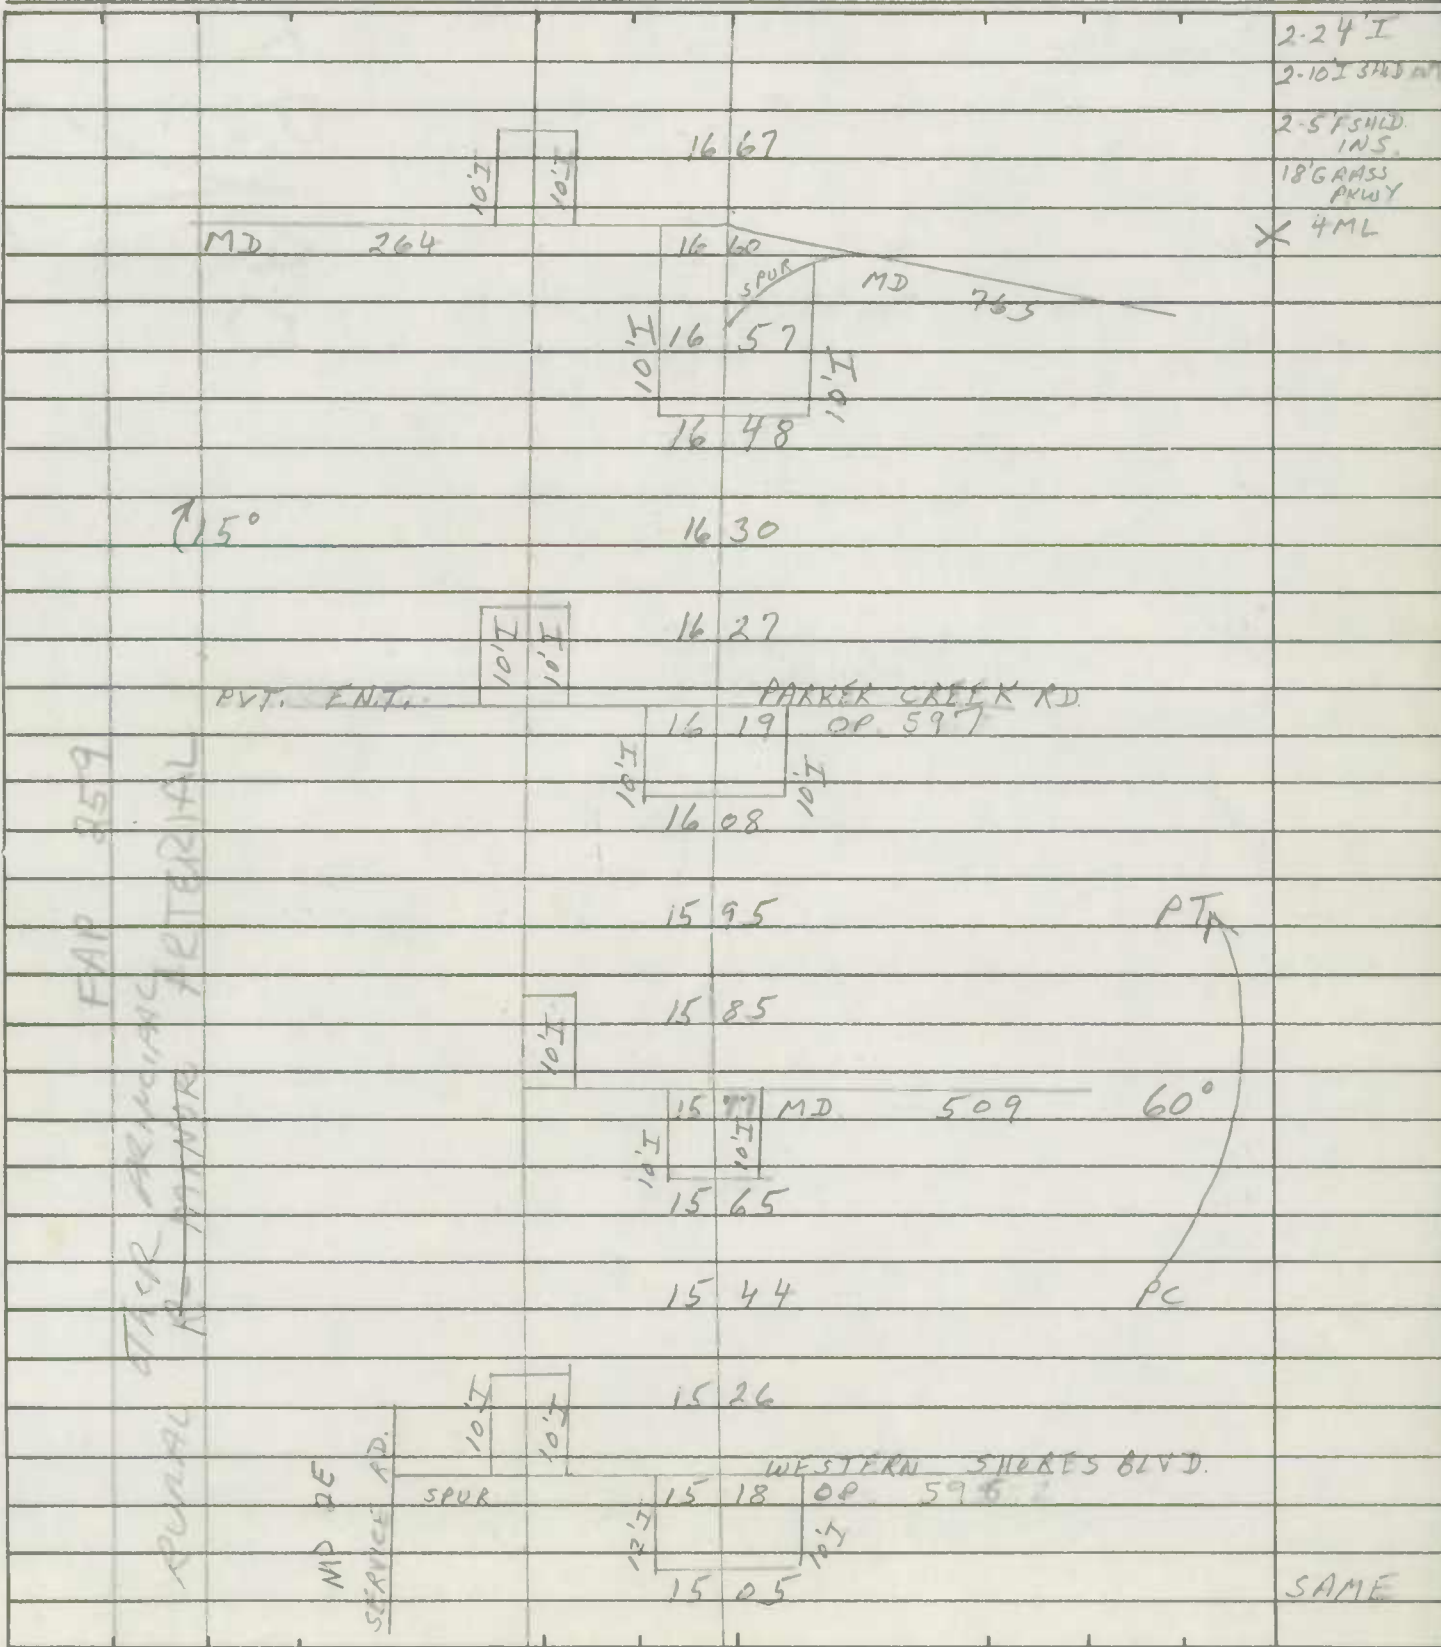 2-24'I
2-10'I SHLD
2-5'F SHLD.
INS.
18'GRASS
PKWY
X 4ML
10'I 10'I 16 67
MD 264 16 60
SPUR MD 765
10'I 16 57 10'I
16 48
15° 16 30
10'I 10'I 16 27
PVT. ENT. PARKER CREEK RD.
16 19 OP 597
10'I 10'I
16 08
15 95 PT
10'I 15 85
15 77 MD 509 60°
10'I 10'I
15 65
15 44 PC
10'I 10'I 15 26
WESTERN SHORES BLVD.
SPUR 15 18 OP 596
12'I 10'I
15 05 SAME
MD 2E
SERVICE RD.
FAP 259
OTHER PRINCIPAL
RURAL R-MINOR ARTERIAL